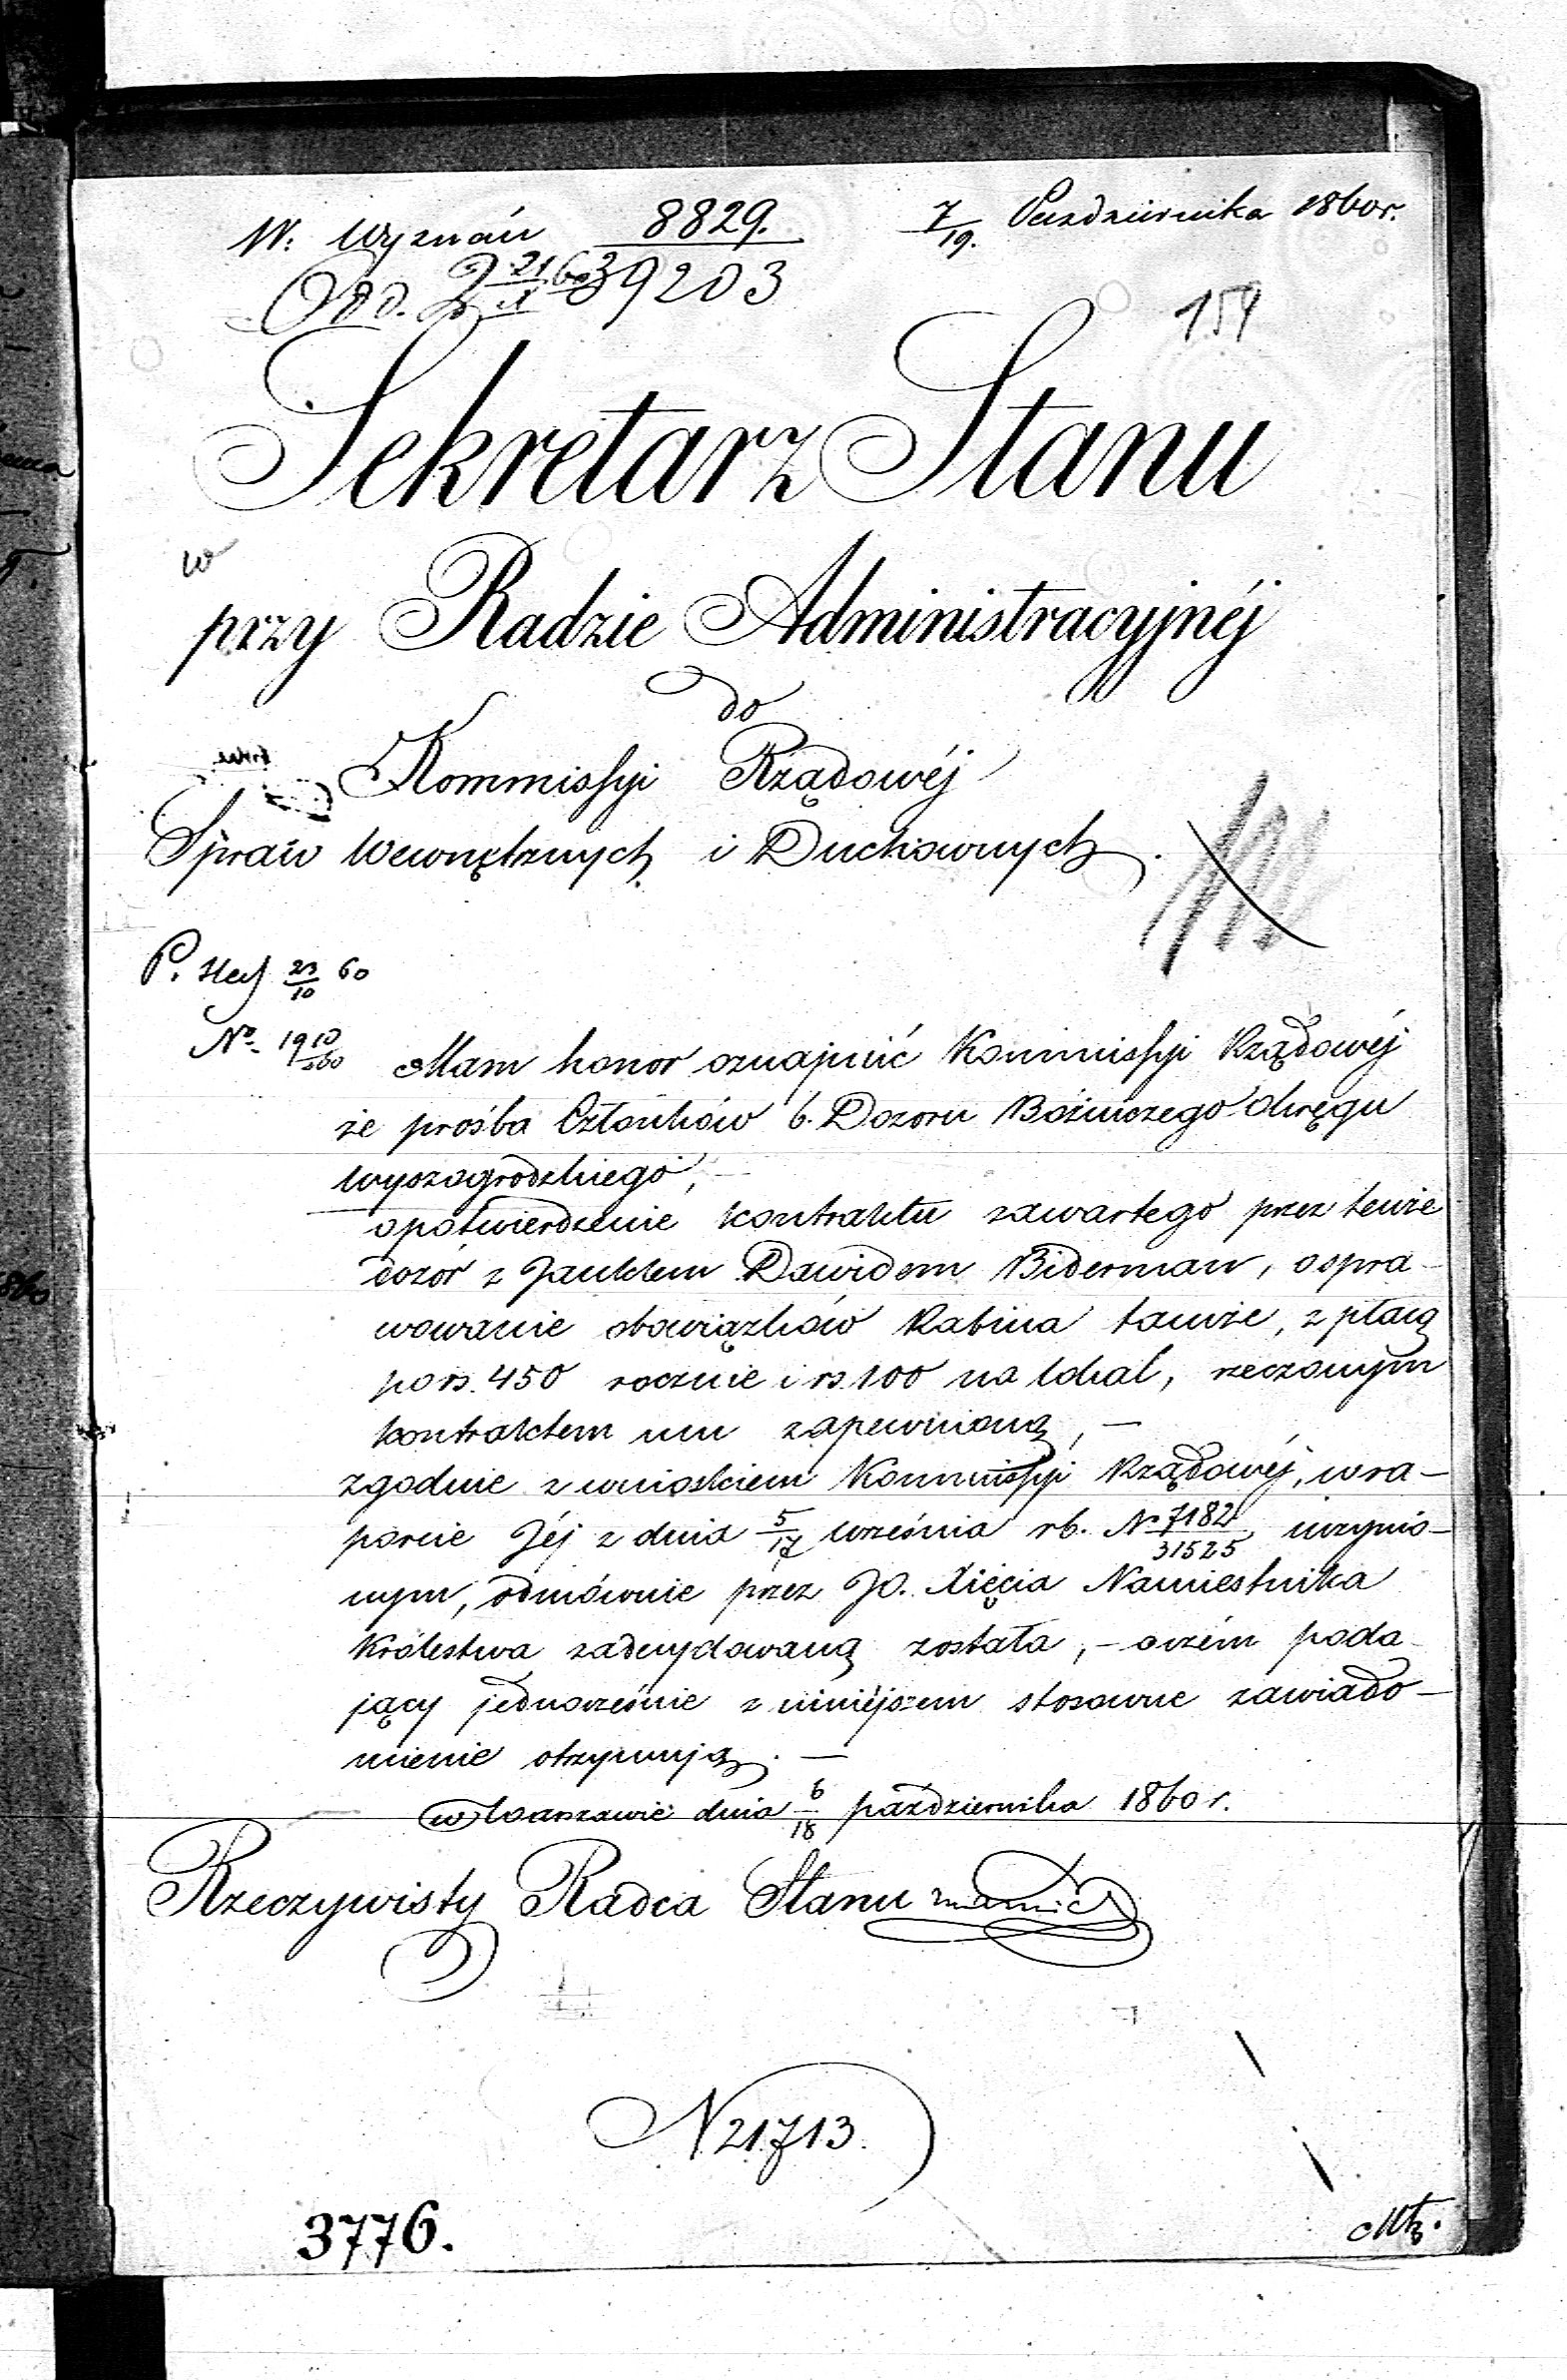 W: Wyznań 8829. 7/19. Października 1860 r.
Odd. 39203
154
Sekretarz Stanu
w
przy Radzie Administracyjnéj
do
Kommissyi Rządowéj
Spraw Wewnętrznych i Duchownych.
P. 23/10 60
No. 1910/60
Mam honor oznajmić Kommissyi Rządowéj
że prośba Członków b. Dozoru Bóżniczego Okręgu
Wyszogrodzkiego,
o potwierdzenie kontraktu zawartego przez tenże
dozór z Janklem Dawidem Biderman, o spra-
wowanie obowiązków Rabina tamże, z płacą
po rs. 450 rocznie i rs. 100 na lokal, rzeczonym
kontraktem mu zapewnioną, —
zgodnie z wnioskiem Kommissyi Rządowéj, w ra-
porcie Jéj z dnia 5/17 Września rb. No 7182/31525 uczynio-
nym, odmównie przez JO. Xięcia Namiestnika
Królestwa zadecydowaną została, – o czém poda-
jący jednocześnie z niniejszem stosowne zawiado-
mienie otrzymują. —
w Warszawie dnia 6/18 października 1860 r.
Rzeczywisty Radca Stanu
N 21713.
3776.